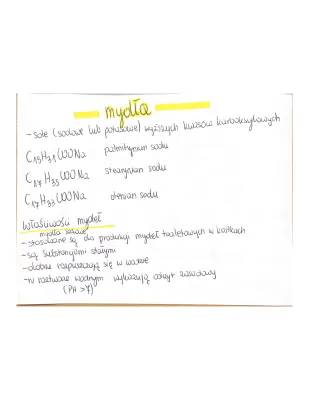 mydła
- sole (sodowe lub potasowe) wyższych kwasów karboksylowych
C₁₅H₃₁COONa palmitynian sodu
C₁₇H₃₅COONa stearynian sodu
C₁₇H₃₃COONa oleinian sodu
Właściwości mydeł
mydła sodowe
- stosowane są do produkcji mydeł toaletowych w kostkach
- są substancjami stałymi
- dobrze rozpuszczają się w wodzie
- w roztworze wodnym wykazują odczyn zasadowy
(pH >7)